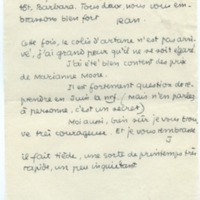 et Barbara. Tous deux, nous vous em-
brassons bien fort
Jean
Cette fois, le colis d'artane n'est pas arri-
vé, j'ai grand peur qu'il ne se soit égaré
J'ai été bien content des prix
de Marianne Moore.
Il est fortement question de
prendre en Juin la nrf (mais n'en parlez
à personne, c'est un secret)
Moi aussi, bien sûr, je vous trou-
ve très courageuse. Et je vous embrasse
J
Il fait tiède, une sorte de printemps très
rapide, un peu inquiétant